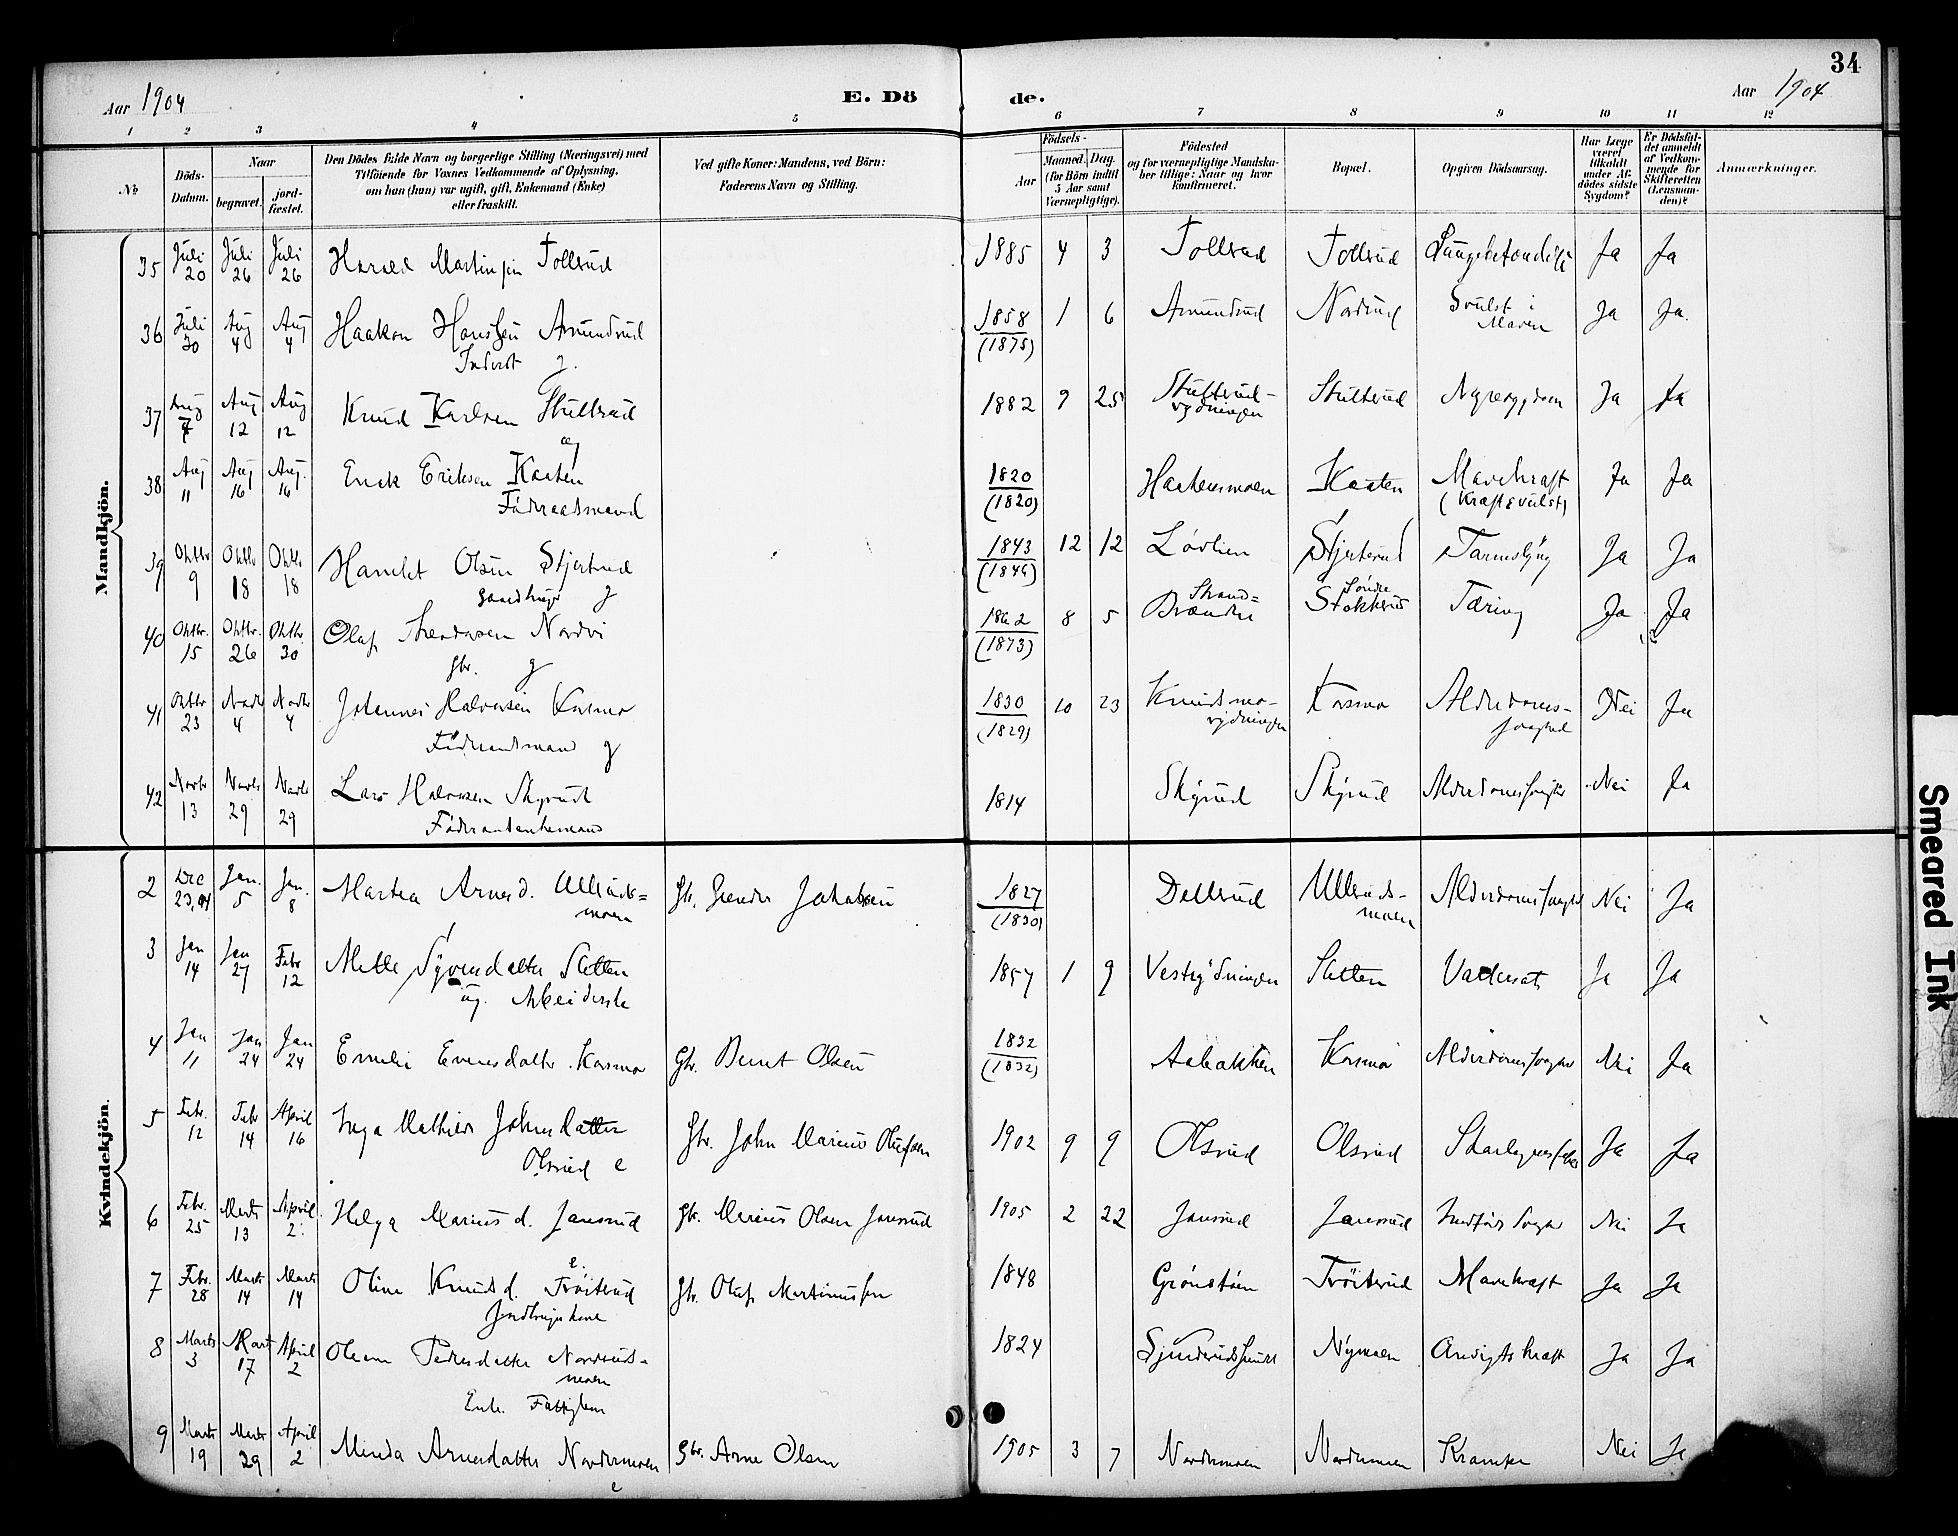 34
Aar 1904
E. Dö de.
Aar 1904
1 2 3 4 5 6 7 8 9 10 11 12
No
Döds-Datum.
Naar
begravet.
jord-fæstet.
Den Dödes fulde Navn og borgerlige Stilling (Næringsvei) med
Tilföiende for Voxnes Vedkommende af Oplysning,
om han (hun) var ugift, gift, Enkemand (Enke)
eller fraskilt.
Ved gifte Koner: Mandens, ved Börn:
Faderens Navn og Stilling.
Födsels-
Aar
Maaned. Dag.
(for Börn indtil
5 Aar samt
Værnepligtige).
Födested
og for værnepligtige Mandska-
ber tillige: Naar og hvor
konfirmeret.
Bopæl.
Opgiven Dödsaarsag.
Har Læge
været
tilkaldt
under Af-
dödes sidste
Sygdom?
Er Dödsfal-
det anmeldt
af Vedkom-
mende for
Skifteretten
(Lensman-
den)?
Anmærkninger.
Mandkjön.
35 Juli 20 Juli 26 Juli 26 Harald Martinsen Tollrud 1885 4 3 Tollrud Tollrud Ja Ja
36 Juli 30 Aug 4 Aug 4 Haakon Amundrud 1858 1 6 Amundrud Nordrud Svulst i Ja Ja.
Inderst g. (1875) Maven
37 Aug 7 Aug 12 Aug 12 Knud Karlsen Stultrud 1882 9 25 Stultrud- Stulterud Nyresygdom Ja Ja
ug rydningen
38 Aug 11 Aug 16 Aug. 16 Erick Eriksen Kaaten 1820 Haakensmoen Kaaten Mavekræft Ja Ja
Föderaadsmand (1820) (Kræftsvulst)
39 Oktbr 9 Oktbr 18 Oktbr 18 Olsen Stjertrud 1843 12 12 Lövlien Stjerterud Ja Ja
Gaardbruger g
40 Oktbr. 15 Oktbr. 26 Oktbr 30 Olaf Nordvi 1862 8 5 Strand= Söndre Tæring Ja Ja
Gbr. g (1873) Brænden Stokkerud
41 Oktbr 23 Novbr 4 Novbr 4 Johannes Halvorsen Kosmo 1830 10 23 Knudsmo- Kosmo Alderdoms- Nei Ja
Föderaadsmand g (1829) rydningen
42 Novbr 13 Novbr 29 Novbr 29 Lars Halvorsen Skyrud 1814 Skyrud Skyrud Nei Ja
Kvindekjön.
2 Dec 23, 04 Jan. 5 Jan. 8 Martea Arnesd. Ulleruds= Gbr. Jakobsen 1827 Dellerud Ulleruds- Nei Ja
moen (1830) moen
3 Jan 14 Jan 27 Febr 12 Mette Syversdatter Sletten 1857 1 9 Vestrydningen Sletten Vattersot Ja Ja
ug. Arbeiderske
4 Jan 11 Jan 24 Jan 24 Emilie Evensdatter Kosmo Gbr. Bernt Olsen 1832 Aabakken Kosmo Nei Ja
(1832)
5 Febr. 12 Febr 14 April 16 Inga Mathilde Johnsdatter Gbr. John Marius Olufsen 1902 9 9 Olsrud Olsrud Skarlagensfeber Ja Ja
Olsrud e
6 Febr. 25 Marts 13 April 2. Helga Mariusd. Jansrud Gbr. Marius Olsen Jansrud 1905 2 22 Jansrud Jansrud Nei Ja
7 Febr. 28 Marts 14 Marts 14 Oline Knudsd. Tröiterud Gbr. Olaf Martinussen 1848 Grönstöen Tröiterud Mavekræft Ja Ja
8 Marts 3 Marts 17 April 2 Oleane Pedersdatter Nordruds- 1824 Nymoen Ansigtskræft Ja Ja
moen
Enke. Fattiglem
9 Marts 19 Marts 29 April 2 Minda Arnesdatter Nordermoen Gbr. Arne Olsen 1905 3 7 Nordermoen Nordermoen Krampe Nei Ja
e
Smeared Ink